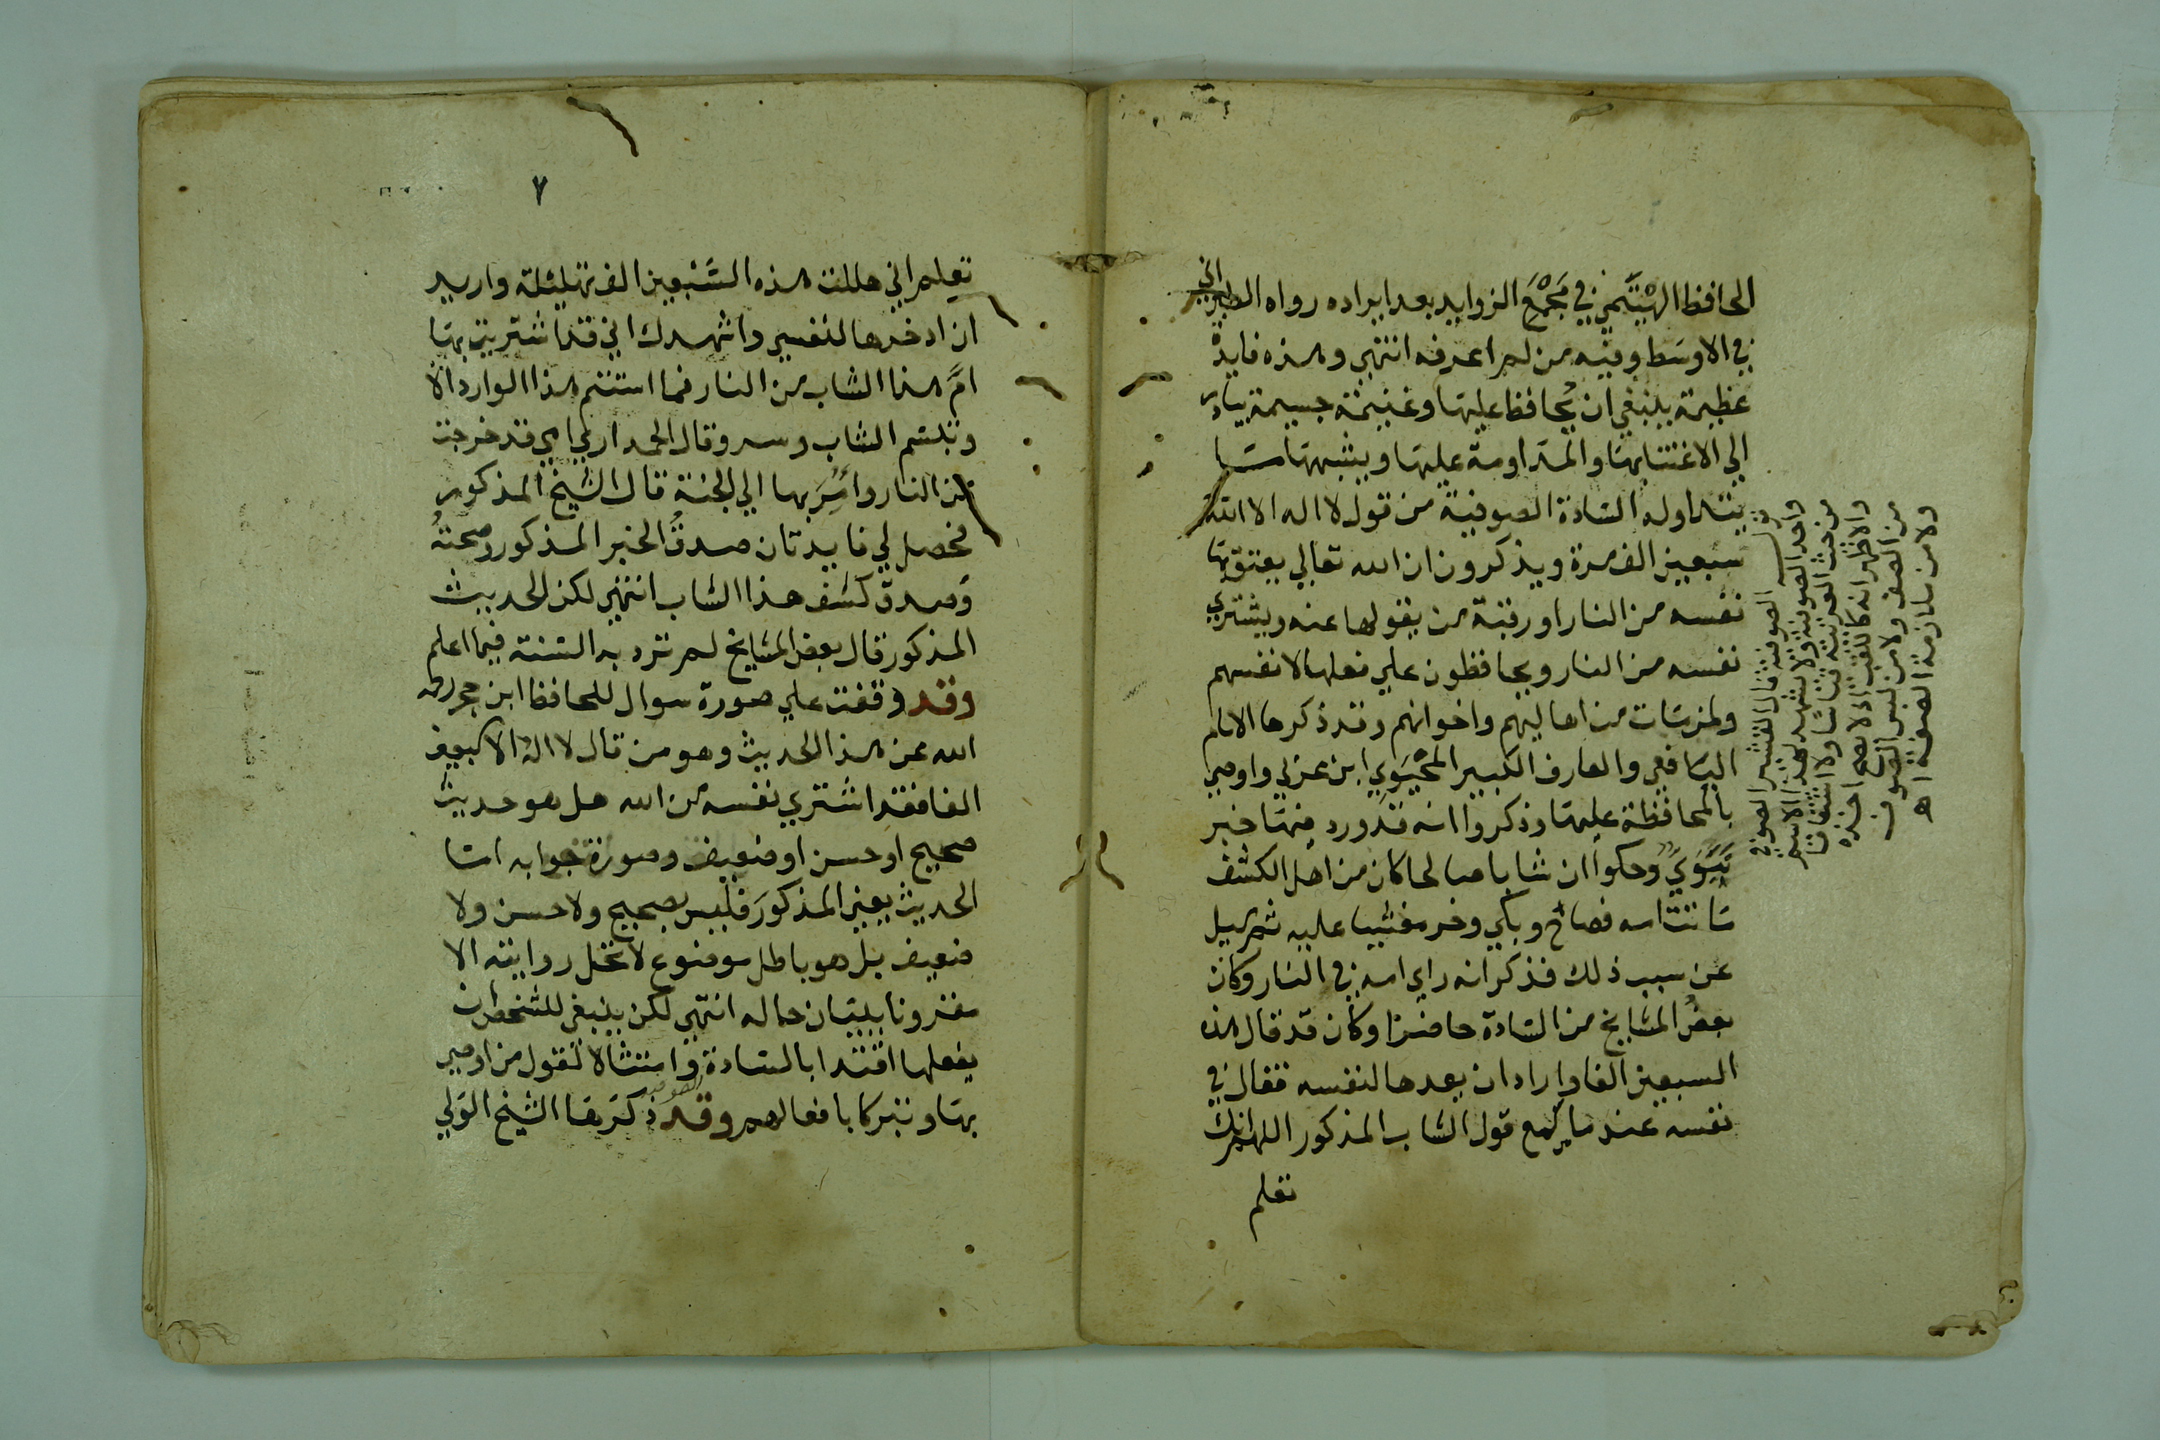 الحافظ الهيثمي في مجمع الزوايد بعد ايراده رواه الطبراني
في الاوسط وفيه من لم اعرفه انتهى وهذه فايدة
عظيمة ينبغي ان يحافظ عليها وغنيمة جسيمة يبادر
الي الاعتنا بها والمداومة عليها ويشبهها ما
يتداوله السادة الصوفية من قول لا اله الا الله
سبعين الف مرة ويذكرون ان الله تعالي يعتق بها
نفسه من النار او رقبة من يقولها عنه ويشتري
نفسه من النار ويحافظون علي فعلها لانفسهم
ولمن مات من اهاليهم واخوانهم وقد ذكرها الامام
اليافعي والعارف الكبير المحيوي ابن عربي واوصي
بالمحافظة عليها وذكروا انه قد ورد فيها خبر
نبوي وحكوا ان شابا صالحا كان من اهل الكشف
ماتت امه فصاح وبكي وخر مغشيا عليه ثم سيل
عن سبب ذلك فذكر انه راي امه في النار وكان
بعض المشايخ من السادة حاضرا وكان قد قال هذه
السبعين الفا واراد ان يعدها لنفسه فقال في
نفسه عندما سمع قول الشاب المذكور اللهم انك
تعلم
الصوفية قال القشيري الصوفي
واحد الصوفية ولا يشهد لهذا الاسم
من حيث العربية قياس ولا اشتقاق
والاظهر انه كاللقب اذ لا يصح اخذه
من الصف ولا من لبس الصوف
ولا من ملازمة الصفة اهـ
٧
تعلم اني هللت هذه السبعين الف تهليلة واريد
ان ادخرها لنفسي واشهدك اني قد اشتريت بها
ام هذا الشاب من النار فما استتم هذا الوارد الا
وتبسم الشاب وسر وقال الحمد اري امي قد خرجت
من النار وامر بها الي الجنة قال الشيخ المذكور
فحصل لي فايدتان صدق الخبر المذكور وصحته
وصدق كشف هذا الشاب انتهى لكن الحديث
المذكور قال بعض المشايخ لم ترد به السنة فيما اعلم
وقد وقفت علي صورة سوال للحافظ ابن حجر رحمه
الله عن هذا الحديث وهو من قال لا اله الا الله سبعين
الفا فقد اشتري نفسه من الله هل هو حديث
صحيح او حسن او ضعيف وصورة جوابه اما
الحديث يعني المذكور فليس بصحيح ولا حسن ولا
ضعيف بل هو باطل موضوع لا تحل روايته الا
مقرونا ببيان حاله انتهى لكن ينبغي للشخص ان
يفعلها اقتدا بالسادة الصوفية وامتثالا لقول من اوصي
بها وتبركا بافعالهم وقد ذكرها الشيخ الولي